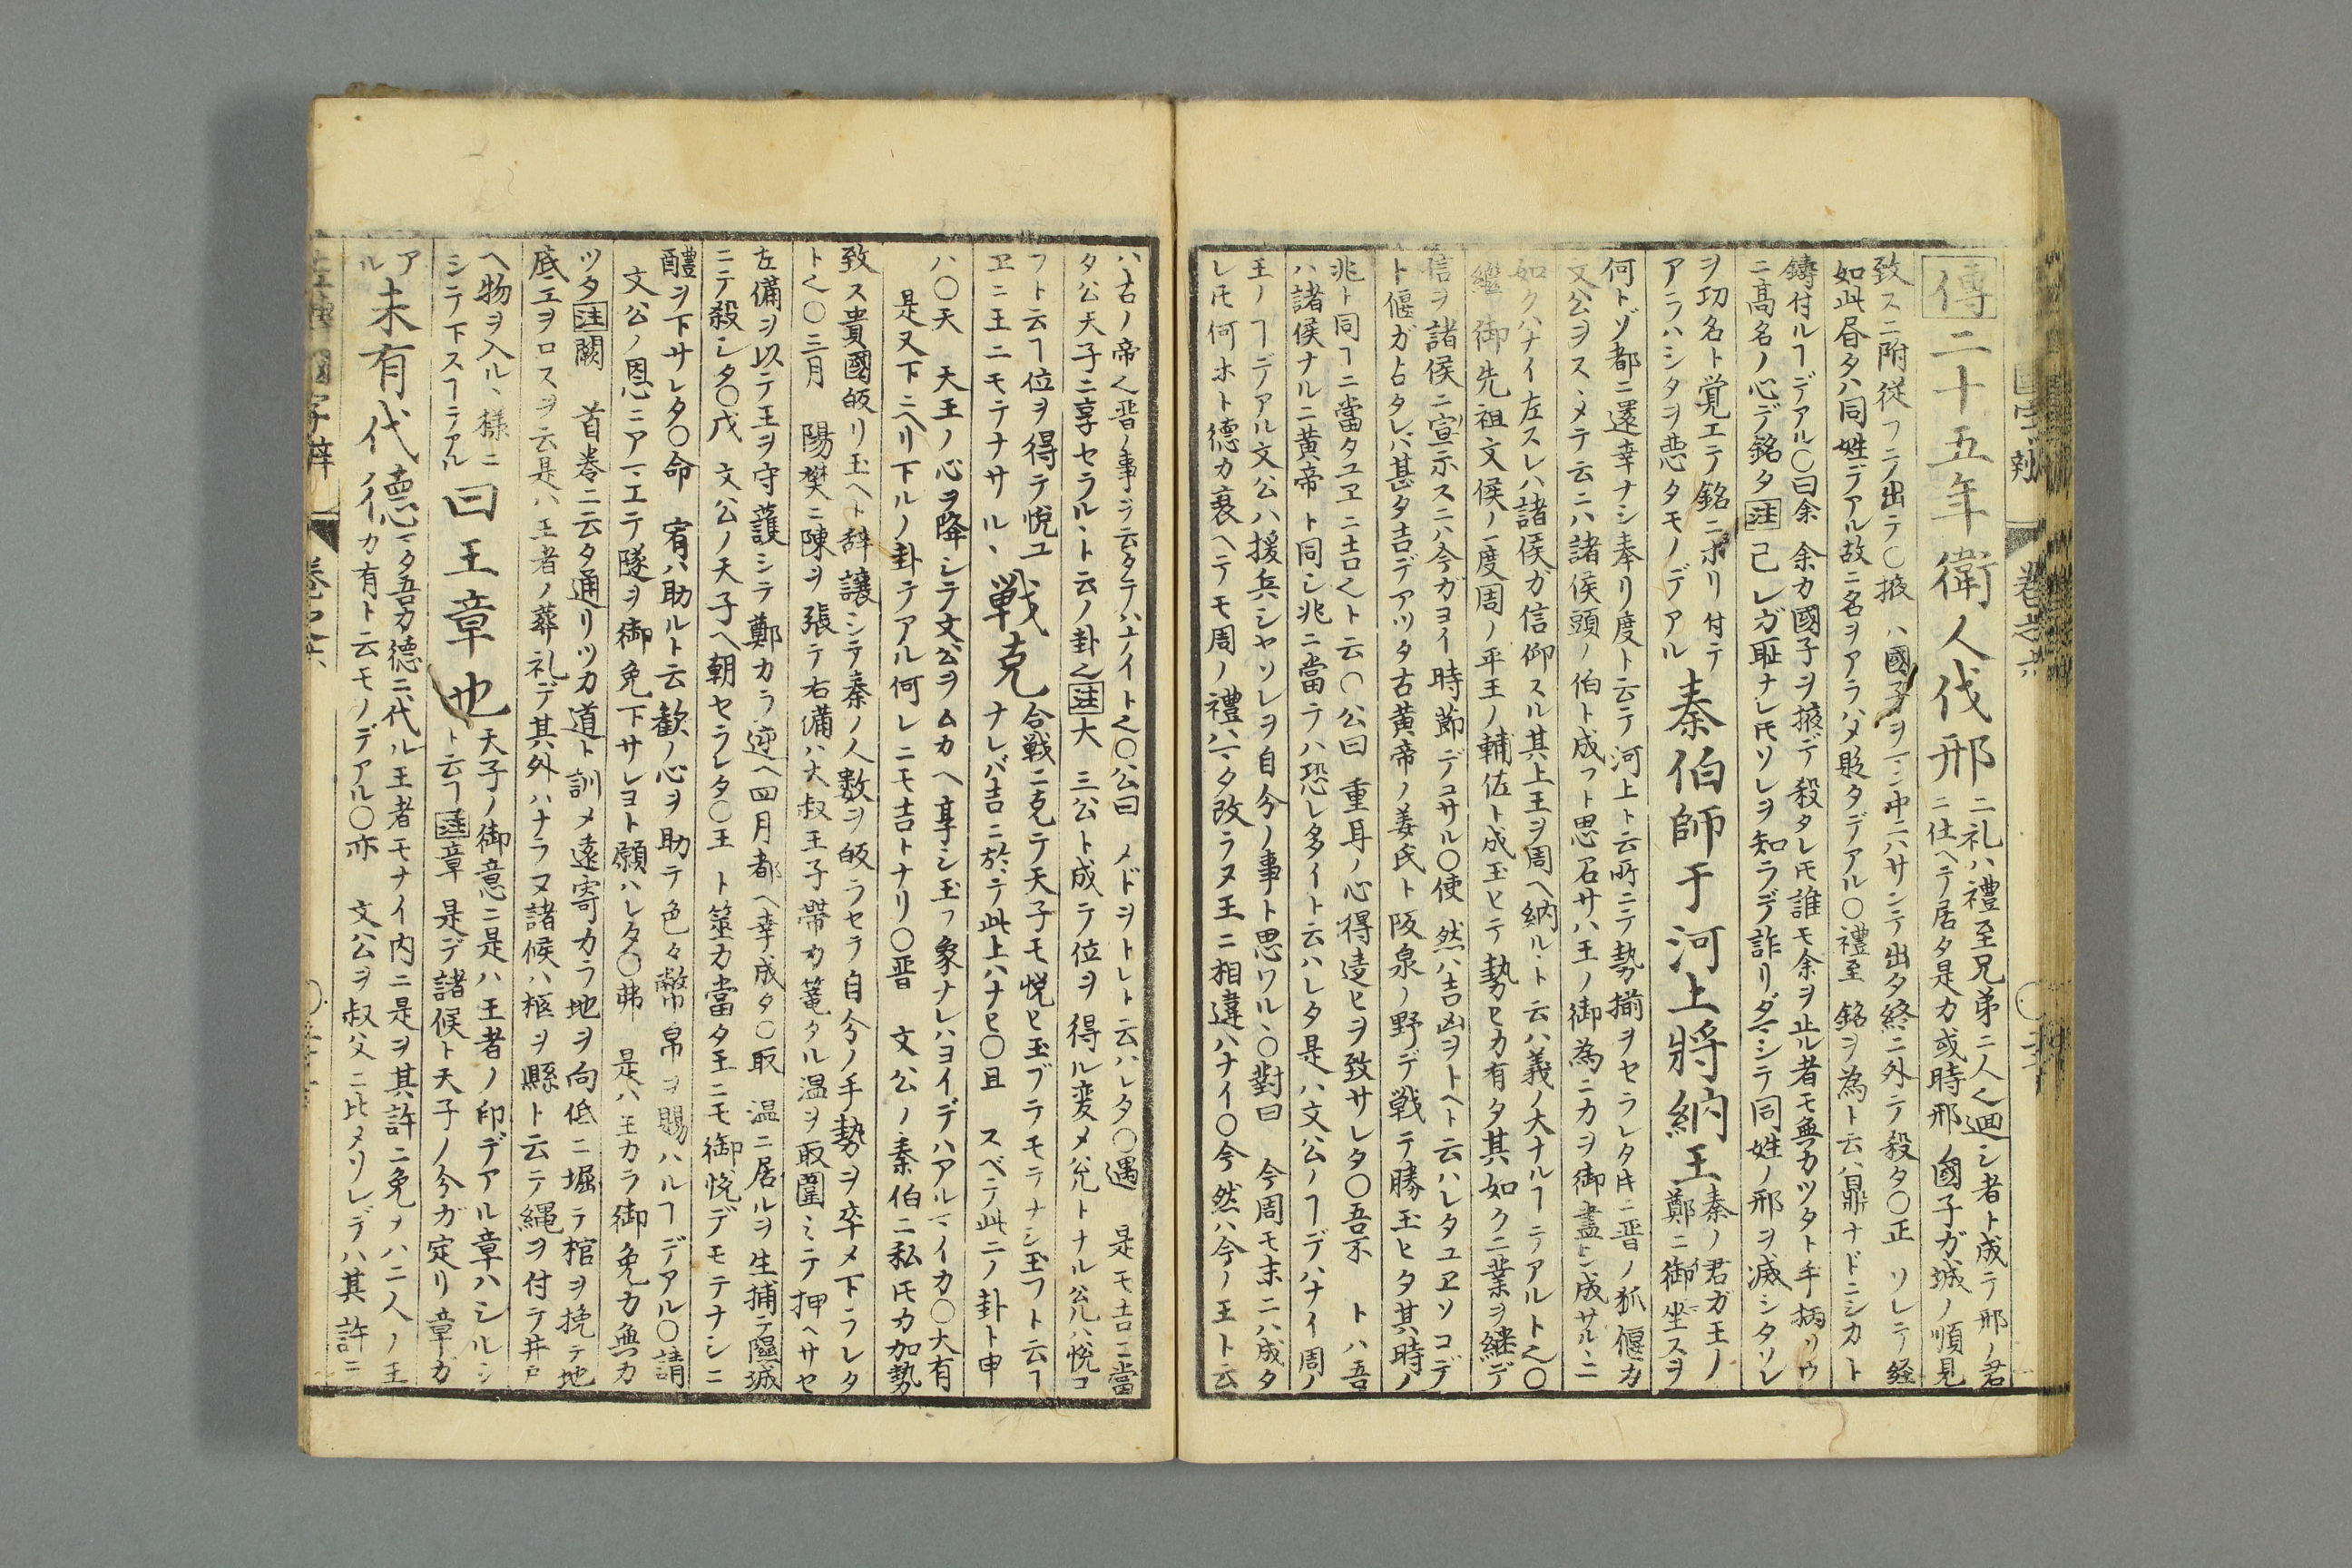 傳二十五年衛人伐邢
二礼ハ禮至兄弟二人く迴シ者ト成テ邢ノ君
ニ仕ヘテ居タ是カ或時邢ノ國子ガ城ノ順見
致スニ附従フニノ出テ〇掖 ハ國子ヲ一ニ中ニハサンテ出タ終ニ外テ殺タ〇正 ソレテ経
如此昏タハ同姓デアル故ニ名ヲアラハメ貶タデアル〇禮至 銘ヲ為ト云ハ鼎ナドニシカト
鑄付ルヿデアル〇曰余 余カ國子ヲ掖デ殺タレ𪜈誰モ余ヲ止ル者モ無カツタト手柄ソウ
ニ高名ノ心デ銘タ注己レガ耻ナレ𪜈ソレヲ知ラデ詐リダマシテ同姓ノ邢ヲ滅シタソレ
ヲ功名ト覚エテ銘ニホリ付テ
アラハシタヲ悪タモノデアル
秦伯師于河上將納王
秦ノ君ガ王ノ
鄭ニ御坐スヲ
何トゾ都ニ還幸ナシ奉リ度ト云テ河上ト云所ニテ勢揃ヲセラレタ𪜈ニ晋ノ狐偃カ
文公ヲスヽメテ云ニハ諸侯頭ノ伯ト成フト思召サハ王ノ御為ニカヲ御盡ン成サルヽニ
如クハナイ左スレハ諸侯ガ信仰スル其上王ヲ周ヘ納ルヽト云ハ義ノ大ナルヿテアルトく〇
繼 御先祖文侯ノ一度周ノ平王ノ輔佐ト成玉ヒテ勢ヒカ有タ其如ク二業ヲ継デ
信ヲ諸侯ニ宣示スニハ今ガヨイ時節デコサル〇使 然ハ吉凶ヲトヘト云ハレタユヱソコデ
ト偃ガ占タレバ甚タ吉デアツタ古黄帝ノ姜氏ト阪泉ノ野デ戦テ勝玉ヒタ其時ノ
兆ト同ヿニ當タユヱニ吉くト云〇公曰 重耳ノ心得違ヒヲ致サレタ〇吾不 トハ吾
ハ諸侯ナルニ黄帝ト同シ兆ニ當テハ恐レ多イト云ハレタ是ハ文公ノヿデハナイ周ノ
王ノヿデアル文公ハ援兵シヤソレヲ自分ノ事ト思ワルヽ〇對曰 今周モ末ニハ成タ
レ𪜈何ホト徳カ衰ヘテモ周ノ禮ハマタ改ラヌ王ニ相違ハナイ〇今然ハ今ノ王ト云
ハ古ノ帝く晋ノ事ヲ云タテハナイトく〇公曰 メドヲトレト云ハレタ〇遇 是モ吉ニ當
タ公天子ニ享セラルヽト云ノ卦く注大 三公ト成テ位ヲ得ル変メ兊トナル兊ハ悦コ
フト云ヿ位ヲ得テ悦ユ
ヱニ王ニモテナサルヽ
戦克
合戦ニ克テ天子モ悦ヒ玉ブテモテナシ玉フト云ヿ
ナレバ吉ニ於テ此上ハナヒ〇且 スベテ此ニノ卦ト申
ハ〇天 天王ノ心ヲ降シテ文公ヲムカヘ享シ玉フ象ナレハヨイデハアルマイカ〇大有
是又下ニヘリ下ルノ卦テアル何レニモ吉トナリ〇晋 文公ノ秦伯ニ私𪜈カ加勢
致ス貴國皈リ玉ヘト辞譲シテ秦ノ人数ヲ皈ラセテ自分ノ手勢ヲ卒メ下ラレタ
トく〇三月 陽樊ニ陳ヲ張テ右備ハ大叔王子帶カ篭タル温ヲ取圍ミテ押ヘサセ
左備ヲ以テ王ヲ守護シテ鄭カラ迎ヘ四月都ヘ幸成タ〇取 温ニ居ルヲ生捕テ隰城
ニテ殺シタ〇戊 文公ノ天子ヘ朝セラレタ〇王 ト筮カ當タ王ニモ御悦デモテナシニ
醴ヲ下サレタ〇命 宥ハ助ルト云歓ノ心ヲ助テ色々幣帛ヲ賜ハルヿデアル〇請
文公ノ恩ニアマエテ隧ヲ御免下サレヨト願ハレタ〇弗 是ハ王カラ御免カ無カ
ツタ注闕 首巻ニ云タ通リツカ道ト訓メ遠寄カラ地ヲ向低ニ堀テ棺ヲ挽テ地
底エヲロスヲ云是ハ王者ノ葬礼デ其外ハナラヌ諸候ハ柩ヲ縣ト云テ縄ヲ付テ井戸
ヘ物ヲ入ルヽ様ニ
シテ下スヿテアル
曰王章也
天子ノ御意ニ是ハ王者ノ印デアル章ハシルシ
ト云ヿ注章 是デ諸候ト天子ノ分ガ定リ章ガ
アル
未有代德
マタ吾カ徳ニ代ル王者モナイ内ニ是ヲ其許ニ免メハ二人ノ王
カ有ト云モノデアル〇亦 文公ヲ叔父ニ比メソレデハ其許ニ